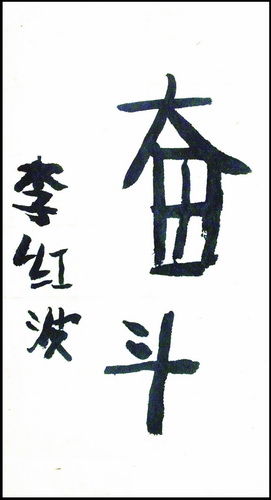 奋斗
李红波